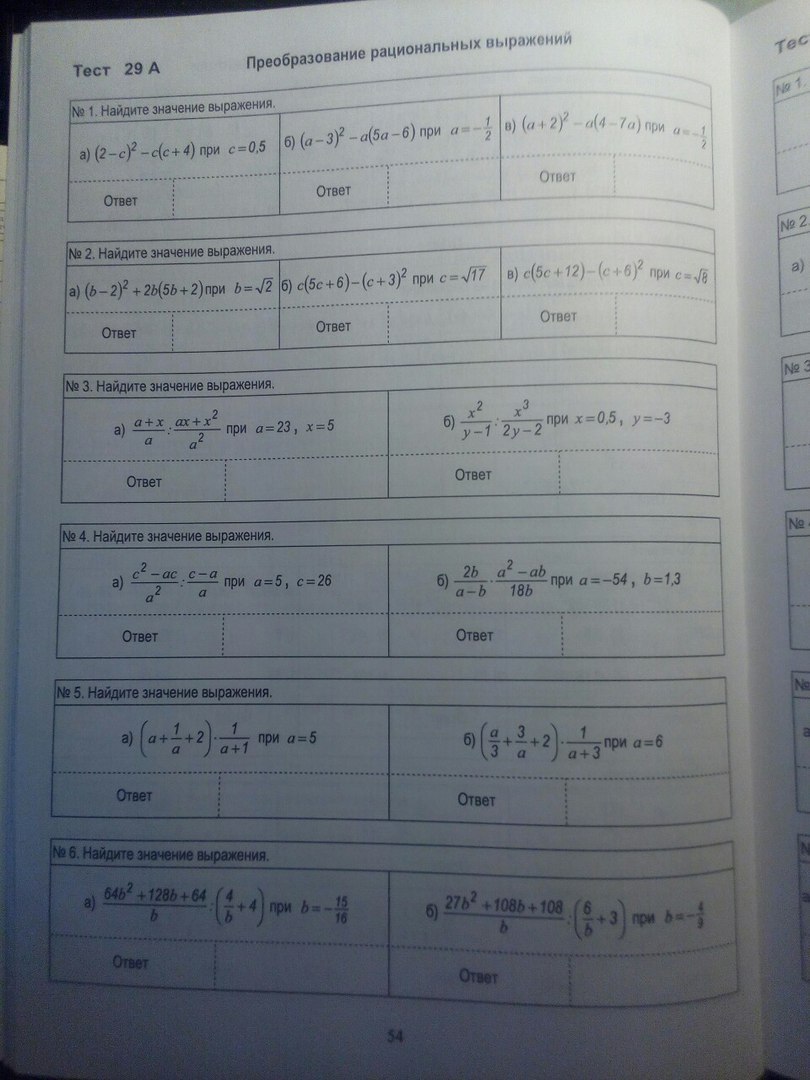 Тест 29 А Преобразование рациональных выражений
№ 1. Найдите значение выражения.
а) (2−c)² −c(c+4) при c=0,5
б) (a−3)² −a(5a−6) при a=−1/2
в) (a+2)² −a(4−7a) при a=−1/2
Ответ
Ответ
Ответ
№ 2. Найдите значение выражения.
а) (b−2)² +2b(5b+2) при b=√2
б) c(5c+6)−(c+3)² при c=√17
в) c(5c+12)−(c+6)² при c=√8
Ответ
Ответ
Ответ
№ 3. Найдите значение выражения.
а) (a+x)/a : (ax+x²)/a² при a=23, x=5
б) x²/(y−1) : x³/(2y−2) при x=0,5, y=−3
Ответ
Ответ
№ 4. Найдите значение выражения.
а) (c²−ac)/a² : (c−a)/a при a=5, c=26
б) 2b/(a−b) · (a²−ab)/18b при a=−54, b=1,3
Ответ
Ответ
№ 5. Найдите значение выражения.
а) (a+1/a+2)·1/(a+1) при a=5
б) (a/3+3/a+2)·1/(a+3) при a=6
Ответ
Ответ
№ 6. Найдите значение выражения.
а) (64b²+128b+64)/b : (4/b+4) при b=−15/16
б) (27b²+108b+108)/b : (6/b+3) при
Ответ
Ответ
54
Тес
№ 1.
№ 2
а)
№ 3
№
№